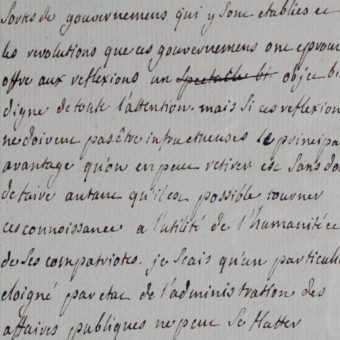 Sortes de gouvernemens qui y sont etablies et
les revolutions que ces gouvernemens ont eprouv
offre aux reflexions un spectable bi objet bi
digne de toute l'attention. mais si ces reflexion
ne doivent pas être infructueuses le principa
avantage qu'on en peut retirer est sans do
de faire autant qu'il est possible tourner
ces connoissance a l'utilité de l'humanité et
de ses compatriotes. je scais qu'un particuli
eloigné par etat de l'administration des
affaires publiques ne peut se flatter